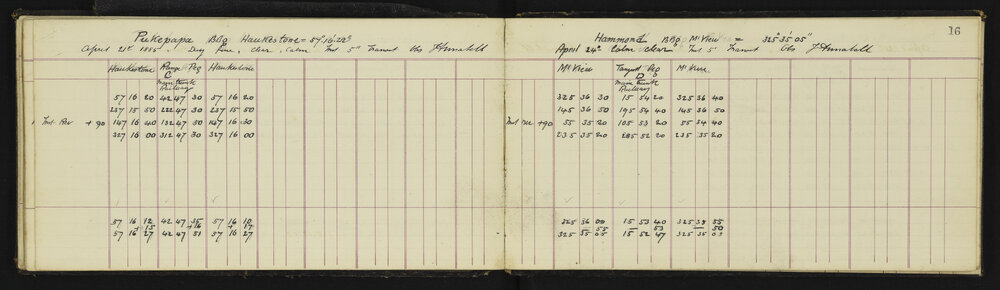 Pukepapa BBg Hawkestone = 57°16'28"
April 21st 1885. Day fine, clear, calm Inst 5" Transit Obs J Annabell
Hawkestone Range Peg Hawkestone
C
Main trunk
Railway
57 16 20 42 47 30 57 16 20
237 15 50 222 47 30 237 15 50
Inst Rev + 90 147 16 40 132 47 50 147 16 30
327 16 00 312 47 30 327 16 00
57 16 12 42 47 35 57 16 10
+ 15 + 16 + 17
57 16 27 42 47 51 57 16 27
16
Hammond BBg. Mt View = 325° 35' 05"
April 24th Calm clear Inst 5" Transit Obs J Annabell
Mt View Tangent Peg Mt View
D
Main trunk
Railway
325 36 30 15 54 20 325 36 40
145 36 50 195 54 40 145 36 50
Inst rev +90 55 35 30 105 53 20 55 34 40
235 35 20 285 52 20 235 35 20
325 36 00 15 53 40 325 35 55
— 55 — 53 — 50
325 35 05 15 52 47 325 35 05